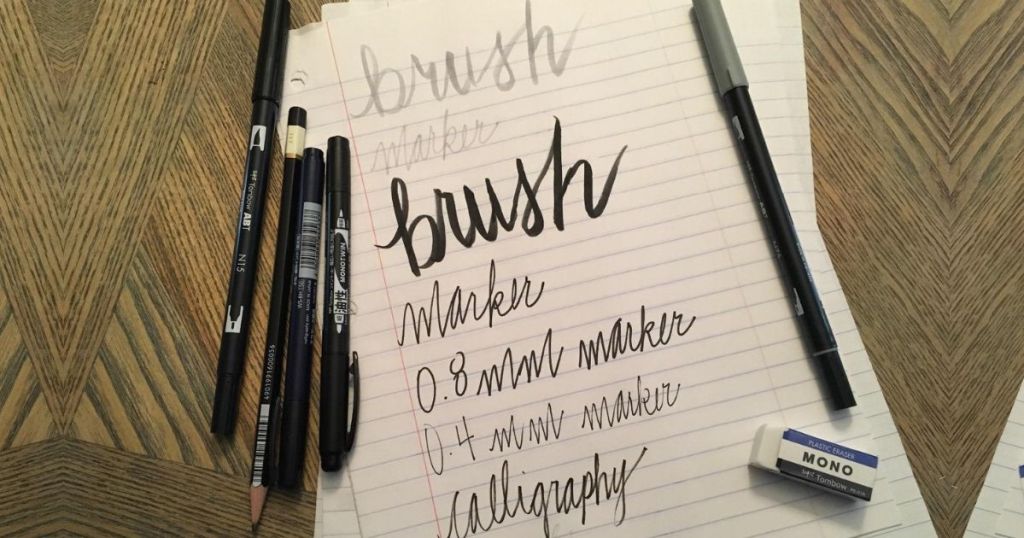 brush
marker
brush
marker
0.8 mm marker
0.4 mm marker
calligraphy
Tombow ABT
N15
4901991600056
MONOTWIN
PLASTIC ERASER
MONO
Tombow